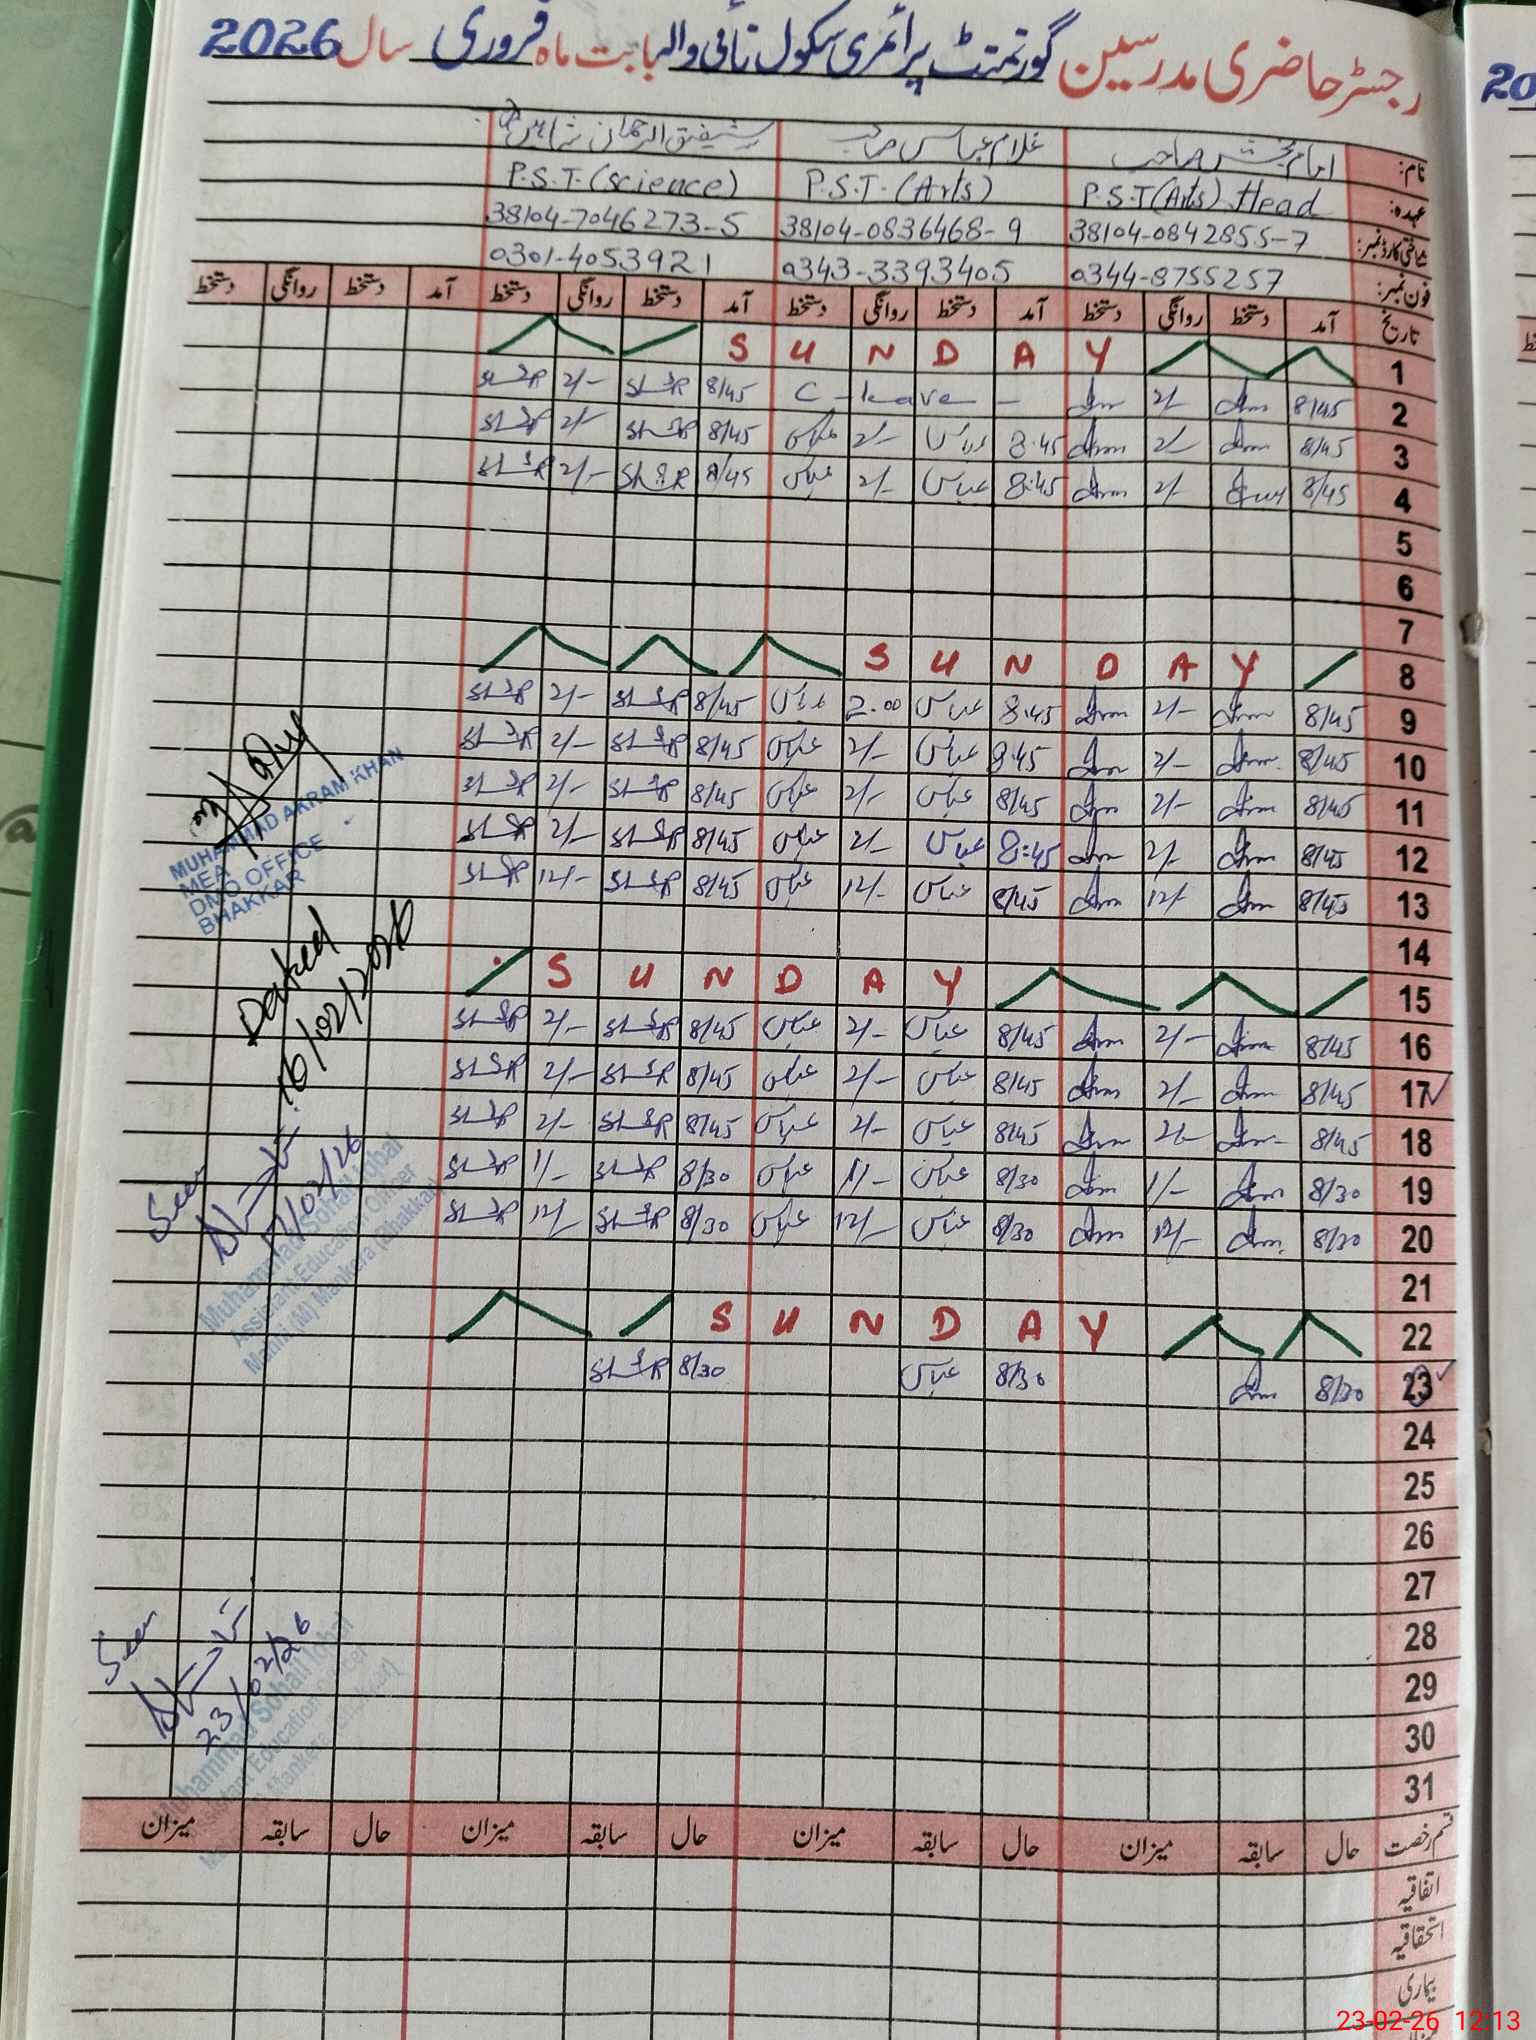 رجسٹر حاضری مدرسین گورنمنٹ پرائمری سکول نائی والہ بابت ماہ فروری سال 2026
نام: امام بخش صاحب غلام عباس صاحب شفیق الرحمان
عہدہ: P.S.T(Arts) Head P.S.T.(Arts) P.S.T.(Science)
شناختی کارڈ نمبر: 38104-0842855-7 38104-0836468-9 38104-7046273-5
فون نمبر: 0344-8755257 0343-3393405 0301-4053921
تاریخ آمد دستخط روانگی دستخط آمد دستخط روانگی دستخط آمد دستخط روانگی دستخط آمد دستخط روانگی دستخط
1 SUNDAY
2 8/45 2/- C-leave - 8/45 2/-
3 8/45 2/- 8:45 عباس 2/- عباس 8/45 2/-
4 8/45 2/- 8:45 عباس 2/- عباس 8/45 2/-
5
6
7
8 SUNDAY
9 8/45 2/- 8:45 عباس 2.00 عباس 8/45 2/-
10 8/45 2/- 8:45 عباس 2/- عباس 8/45 2/-
11 8/45 2/- 8/45 عباس 2/- عباس 8/45 2/-
12 8/45 2/- 8:45 عباس 2/- عباس 8/45 2/-
13 8/45 12/- 8/45 عباس 12/- عباس 8/45 12/-
14
15 SUNDAY
16 8/45 2/- 8/45 عباس 2/- عباس 8/45 2/-
17 8/45 2/- 8/45 عباس 2/- عباس 8/45 2/-
18 8/45 2/- 8/45 عباس 2/- عباس 8/45 2/-
19 8/30 1/- 8/30 عباس 1/- عباس 8/30 1/-
20 8/30 12/- 8/30 عباس 12/- عباس 8/30 12/-
21
22 SUNDAY
23 8/30 8/30 عباس 8/30
24
25
26
27
28
29
30
31
MUHAMMAD AKRAM KHAN
MEA
DMO OFFICE
BHAKKAR
Dated
16/02/2026
Seen
17/02/26
Muhammad Sohail Iqbal
Assistant Education Officer
(M) Mankera (Bhakkar)
Seen
23/02/26
Muhammad Sohail Iqbal
Assistant Education Officer
Mankera
قسم رخصت حال سابقہ میزان حال سابقہ میزان حال سابقہ میزان حال سابقہ میزان
اتفاقیہ
استحقاقیہ
بیماری
20
23-02-26 12:13